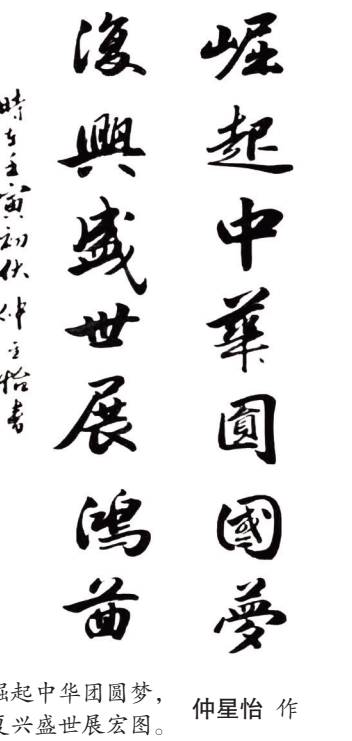 崛起中華圓國夢
復興盛世展鴻啚
時在壬寅初伏仲星怡書
崛起中华团圆梦，
复兴盛世展宏图。
仲星怡 作